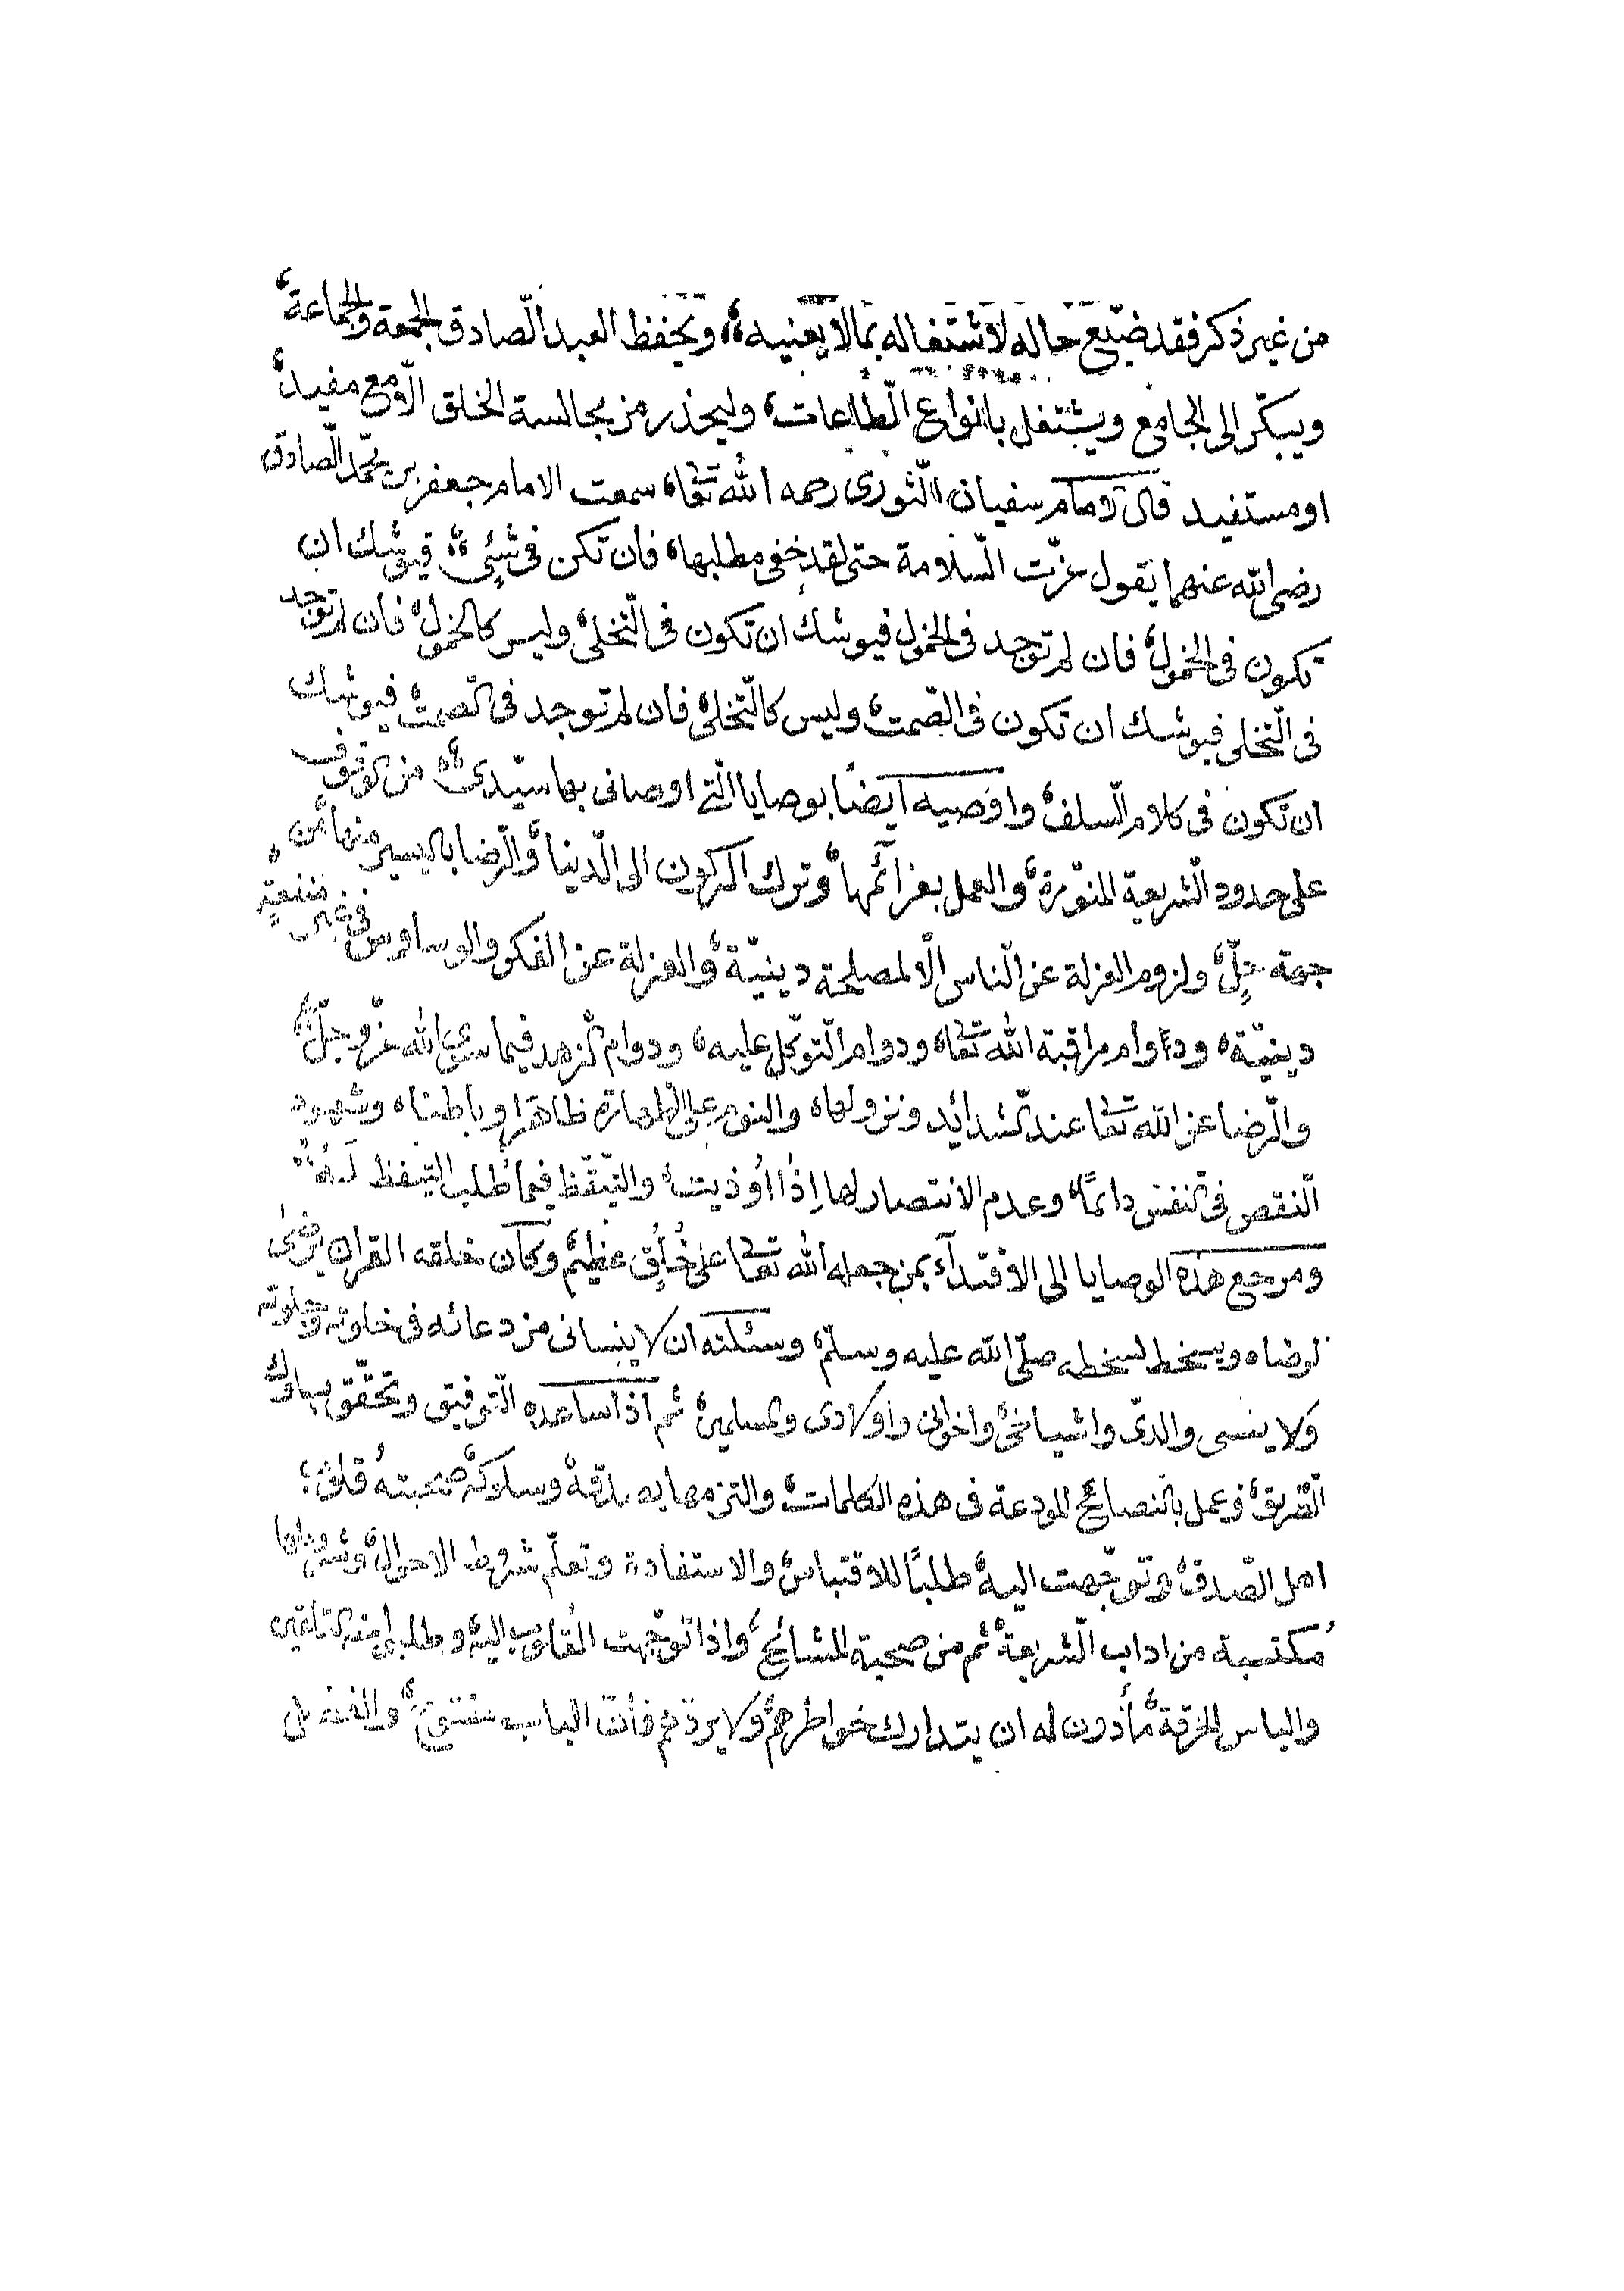 من غير ذكر فقد ضيّع حاله لاشتغاله بما لا يعنيه، ويحفظ العبد الصّادق الجمعة والجماعة،
ويبكّر الى الجامع ويشتغل بانواع الطّاعات، وليحذر من مجالسة الخلق الّا مع مفيد،
او مستفيد قال الامام سفيان الثّورى رحمه الله تعا، سمعت الامام جعفر بن محمّد الصّادق
رضى الله عنهما يقول عزّت السّلامة حتى لقد خفى مطلبها، فان تكن فى شئى، فيوشك ان
تكون فى الخمول، فان لم توجد فى الخمول فيوشك ان تكون فى التّخلى، وليس كالخمول، فان لم توجد
فى التّخلى فيوشك ان تكون فى الصّمت، وليس كالتّخلى، فان لم توجد فى الصّمت، فيوشك
ان تكون فى كلام السّلف، واوصيه ايضًا بوصايا الّتى اوصانى بها سيّدى، من الوقوف
على حدود الشّريعة المنوّرة، والعمل بعزآئمها، وترك الركون الى الدّنيا، والرّضا باليسير منها من
جهة حِلّ، ولزوم العزلة عن النّاس الّا لمصلحة دينيّة، والعزلة عن الفكر والوساوس فى غير منفعة
دينيّة، ودوام مراقبة الله تعا، ودوام التّوكّل عليه، ودوام الزهد فيما سوى الله عزّ وجلّ،
والرّضا عن الله تعا عند الشدائد ونزولها، والنوم على الطّهارة ظاهرا وباطنا، وشهود
النّقص فى النفس دائمًا، وعدم الانتصار لها اِذا اُوذيت، والتّيقّظ فيما طُلب التيقظ لَهُ،
ومرجع هذه الوصايا الى الاقتدآء بمن جعله الله تعا على خُلُقٍ عظيم، وكان خلقه القران يرضى
لرضاه ويسخط لسخطه صلّى الله عليه وسلّم، وسئلته ان لا ينسانى من دعائه فى خلوته وجلوته
ولا ينسى والدىّ واشياخى، واخوانى واولادى والمسلمين، ثم اذا ساعده التّوفيق وتحقّق بسلوك
الطّريق، وعمل بالنصائح المودعة فى هذه الكلمات، والتزمها به وسلوكه، صحبته قلوب
اهل الصّدق، وتوجّهت اليه، طلبًا للاقتباس، والاستفادة وتعلّم شروط الاحوال، وشروطها
مكتسبة من اداب الشّريعة، ثم من صحبة المشائخ، واذا توجّهت القلوب اليه، وطلبوا منه التلقين
والباس الخرقة، مأذون له ان يتدارك خواطرهم، ولا يردّهم فأنّ الباب مفتوح، والفضل